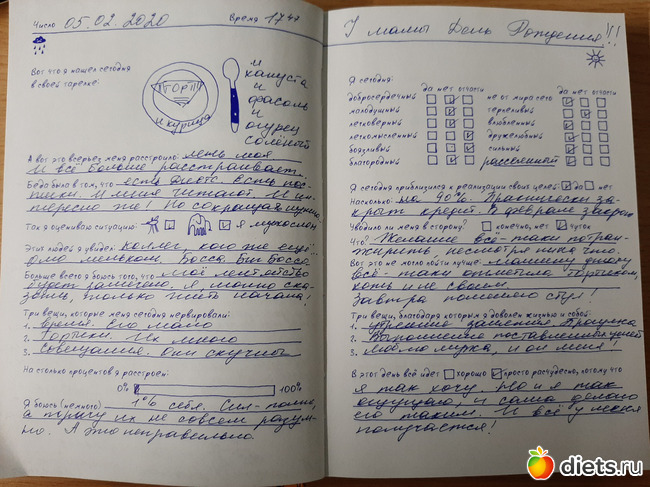 Число 05.02.2020 Время 17 47
Вот что я нашел сегодня
в своей тарелке:
ТОРТ
и курица
и
капуста
и
фасоль
и
огурец
солёный
А вот это всерьез меня расстроило: лень моя.
И всё больше расстраивает.
Беда была в том, что есть Диетс. Есть пос-
тики. И меня читают. И ин-
тересно же! Но сокращая
Так я оцениваю ситуацию: я мухослон
Этих людей я увидел: Коллег, кого же ещё?..
Биг Босса.
Больше всего я боюсь того, что моё лентяйство
будет замечено. А, можно ска-
зать, только жить начала!
Три вещи, которые меня сегодня нервировали:
1. Время. Его мало
2. Тортики. Их много
3. Совещания. Они скучные
На сколько процентов я расстроен:
0% 100%
Я боюсь (немного) 1% себя. Сил - полно,
а трачу их не совсем разум-
но. А это неправильно
У мамы День Рождения!!!
Я сегодня:
да нет отчасти да нет отчасти
добросердечный не от мира сего
малодушный терпеливый
легковерный влюбленный
легкомысленный дружелюбный
боязливый сильный
благородный рассеянней
Я сегодня приблизился к реализации своих целей: да нет
Насколько: на 90%. Практически за-
крыт кредит. В феврале закрою
Уводило ли меня в сторону? конечно, нет чуток
Что? Желание всё-таки потран-
жирить, несмотря ни на что.
Вот это не могло пойти лучше: мамину днюху
всё-таки отметила тортиком,
хоть и не своим.
Завтра поменяем стул!
Три вещи, благодаря которым я доволен жизнью и собой:
1. утренние занятия.
2. Выполнение поставленных целей
3. Люблю мужа, и он меня!
В этот день всё идет хорошо просто расчудесно, потому что
я так хочу. Но и я так
ощущаю, и сама делаю
его таким. И всё у меня
получается!
diets.ru